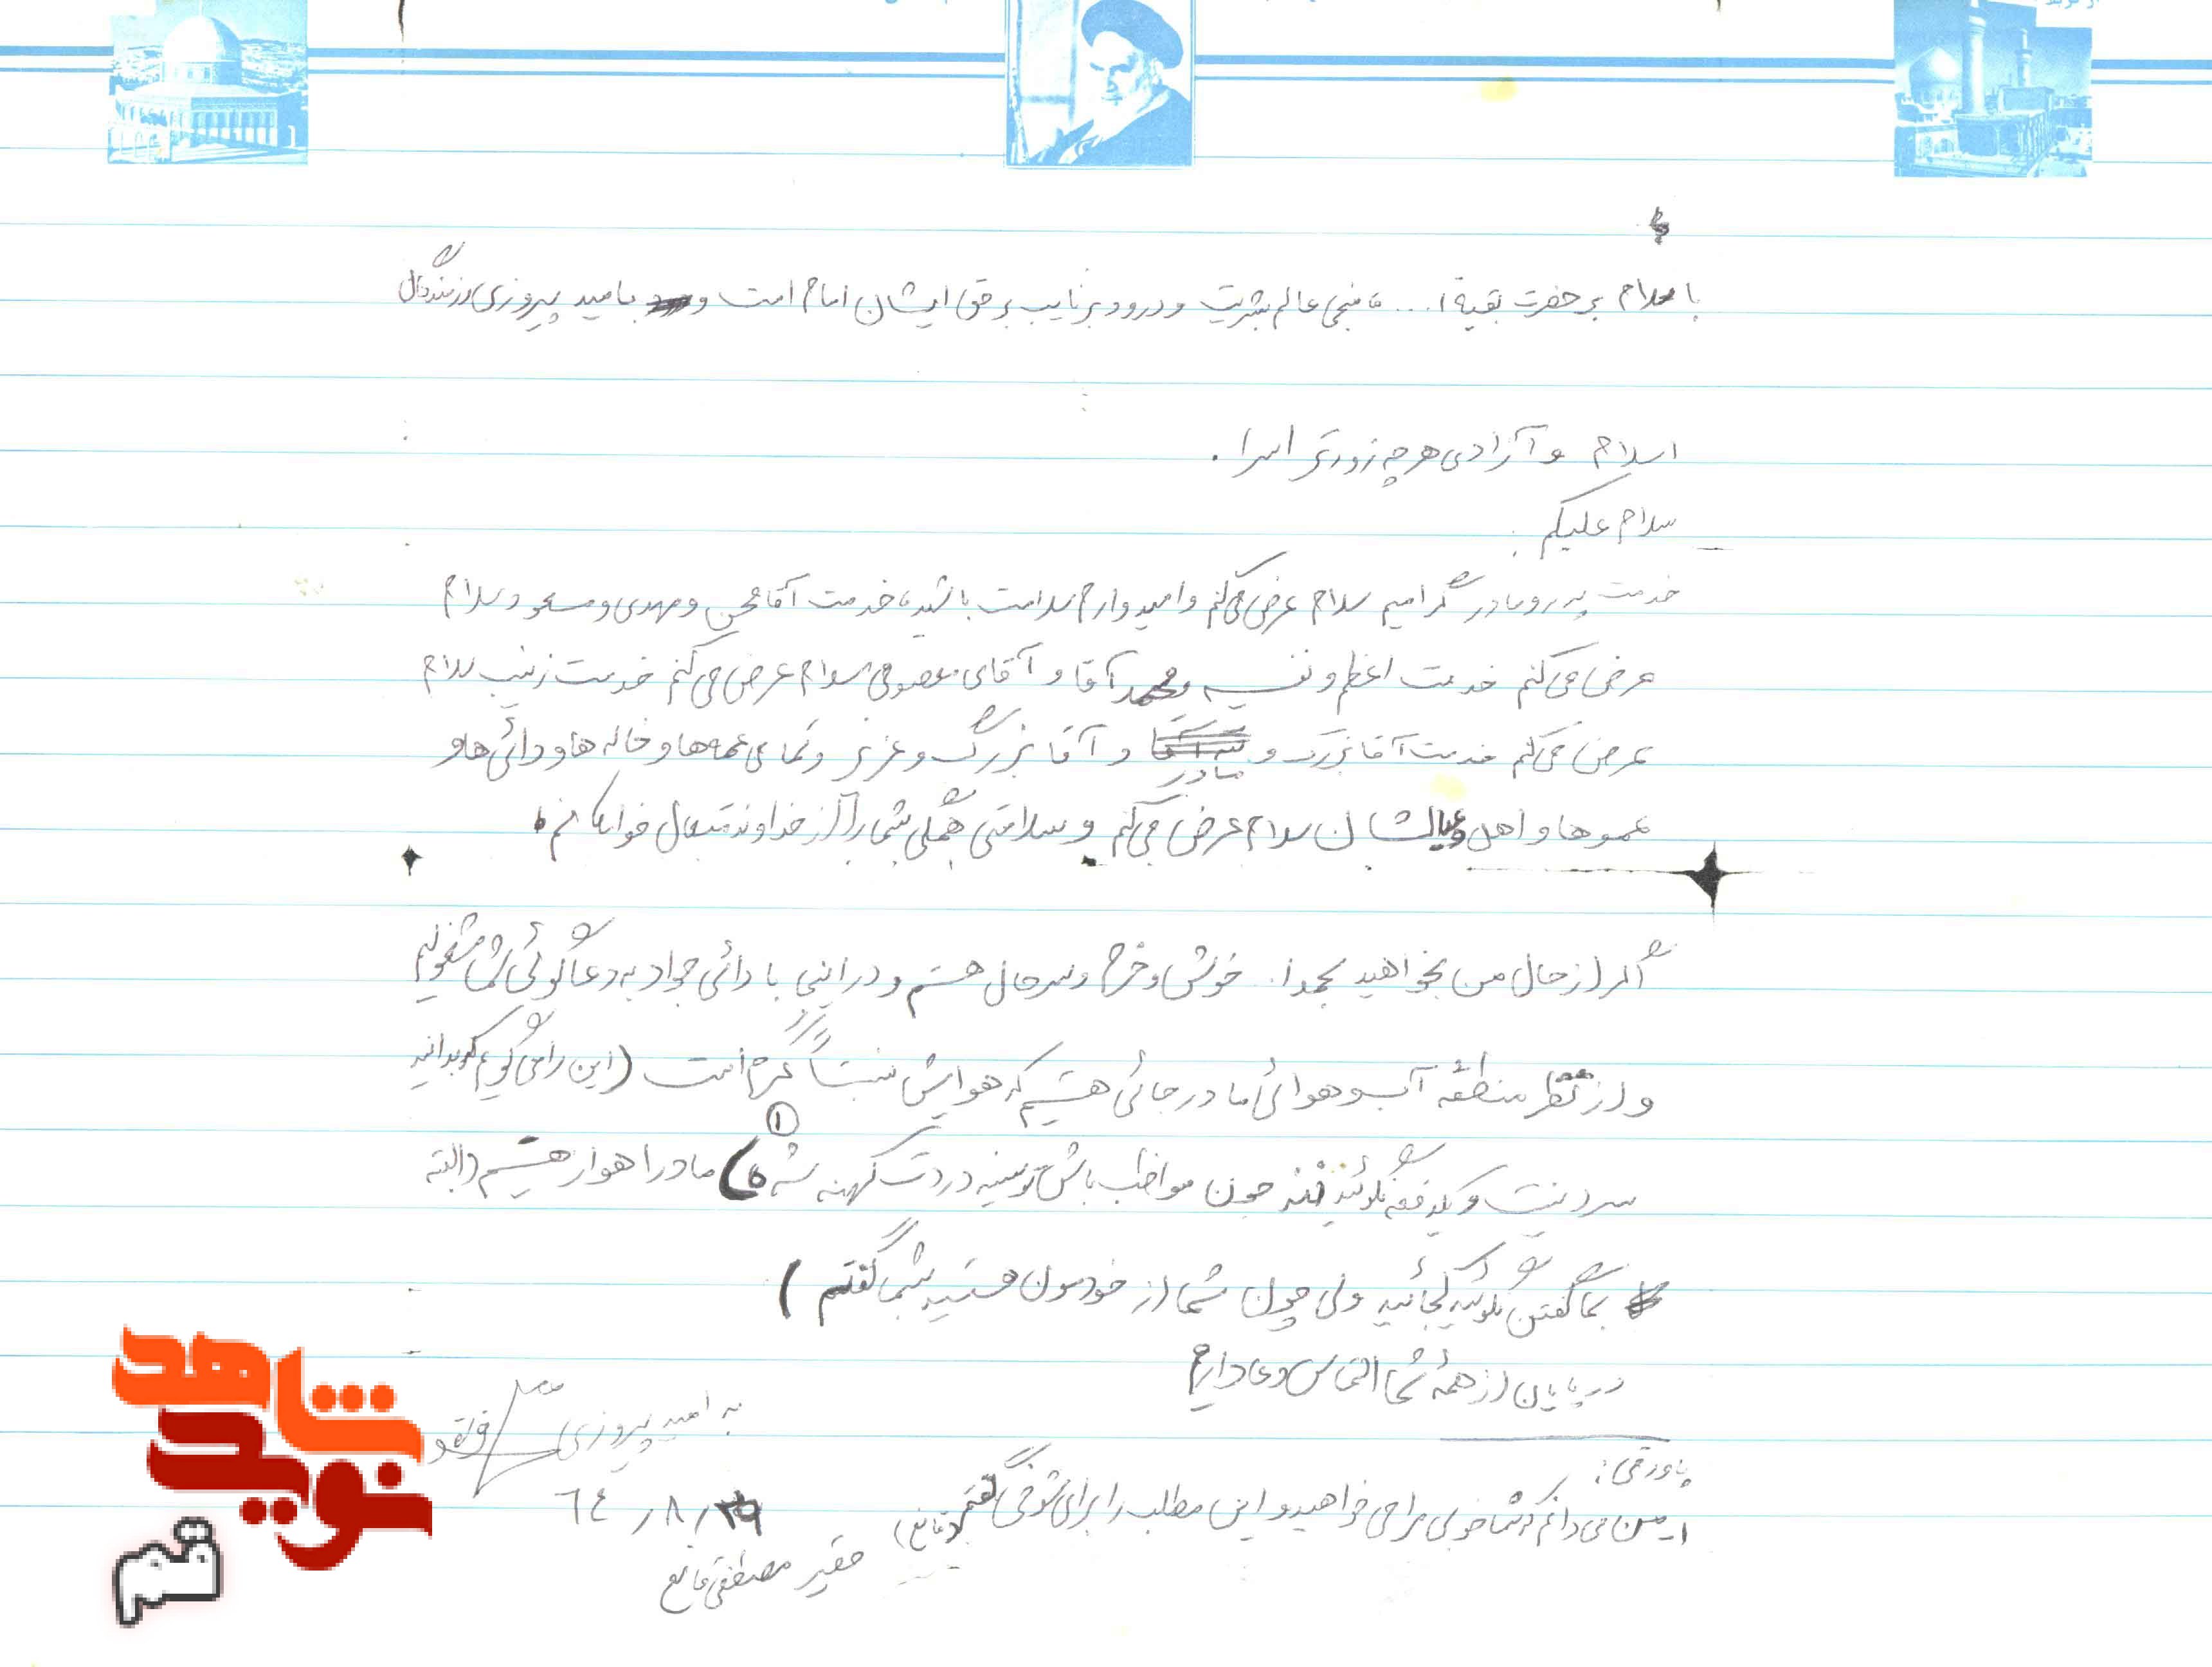 با سلام بر حضرت بقیة ا... منجی عالم بشریت و درود بر نایب بر حق ایشان امام امت و بامید پیروزی رزمندگان
اسلام و آزادی هر چه زودتر اسرا .
سلام علیکم :
خدمت پدر و مادر گرامیم سلام عرض می‌کنم و امیدوارم سلامت باشید، خدمت آقا محسن و مهدی و مسعود سلام
عرض می‌کنم خدمت اعظم و نفیسه و محمد آقا و آقای معصومی سلام عرض می‌کنم خدمت زینب سلام
عرض می‌کنم خدمت آقا بزرگ و مادر و آقا بزرگ و عزیز و تمامی عمه‌ها و خاله ها و دائی ها و
عموها و اهل و عیالشان سلام عرض می‌کنم و سلامتی همگی شما را از خداوند متعال خواهانم.
اگر از حال من بخواهید بحمدا... خوش و خرم و سرحال هستم و در اینجا با دائی جواد به دعا گوئی شما مشغولیم
و از نظر منطقه آب و هوائی ما در جائی هستیم که هوایش نسبتاً گرم است (این را می گویم که بدانید
سرد نیست و یکدفعه نگوئید ننه جون مواظب باش تو سینه دردت کهنه نشه) (۱) ما در اهواز هستیم (البته
بما گفتن نگوئید کجائید ولی چون شما از خودمون هستید بشما گفتم )
در پایان از همهٔ شما التماس دعا دارم
به امید پیروزی
پاورقی:
۱- من می دانم که شما خوبی مرا می خواهید و این مطلب را برای شوخی گفتم
٦٤/٨/
حقیر مصطفی
شاهد
نوید
قم